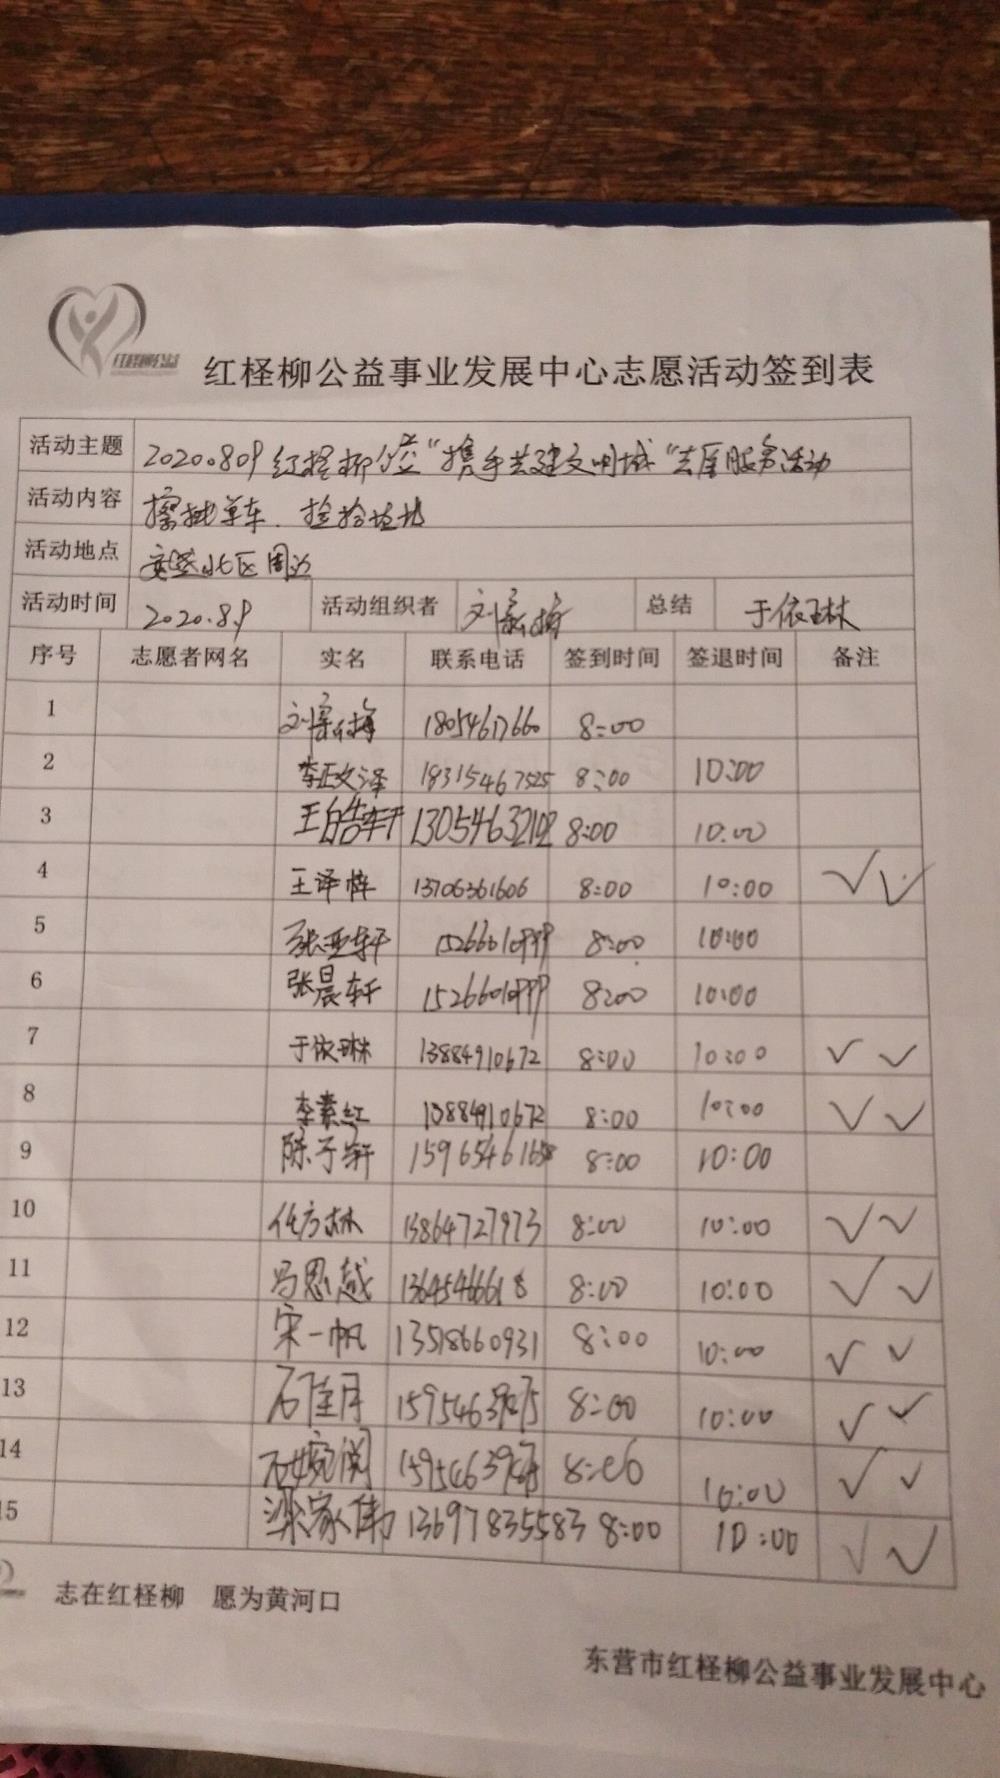 红柽柳公益
红柽柳公益事业发展中心志愿活动签到表
活动主题 2020.809红柽柳公益"携手共建文明城"志愿服务活动
活动内容 擦拭单车、捡拾垃圾
活动地点 安盛北区周边
活动时间 2020.8.9 活动组织者 刘 梅 总结 于依琳
序号 志愿者网名 实名 联系电话 签到时间 签退时间 备注
1 刘 梅 8:00
2 李政文泽 18315467525 8:00 10:00
3 王皓轩 8:00 10:00
4 王泽梓 13706361606 8:00 10:00 ✓ ✓
5 张亚轩 15266010999 8:00 10:00
6 张晨轩 15266010999 8:00 10:00
7 于依琳 13884910672 8:00 10:00 ✓ ✓
8 李素红 13884910672 8:00 10:00 ✓ ✓
9 陈子轩 8:00 10:00
10 任方林 13864727973 8:00 10:00 ✓ ✓
11 冯恩越 8:00 10:00 ✓ ✓
12 宋一帆 13518660931 8:00 10:00 ✓ ✓
13 石佳月 8:00 10:00 ✓ ✓
14 石婉阅 8:00 10:00 ✓ ✓
15 梁家伟 13697835583 8:00 10:00 ✓ ✓
志在红柽柳 愿为黄河口
东营市红柽柳公益事业发展中心